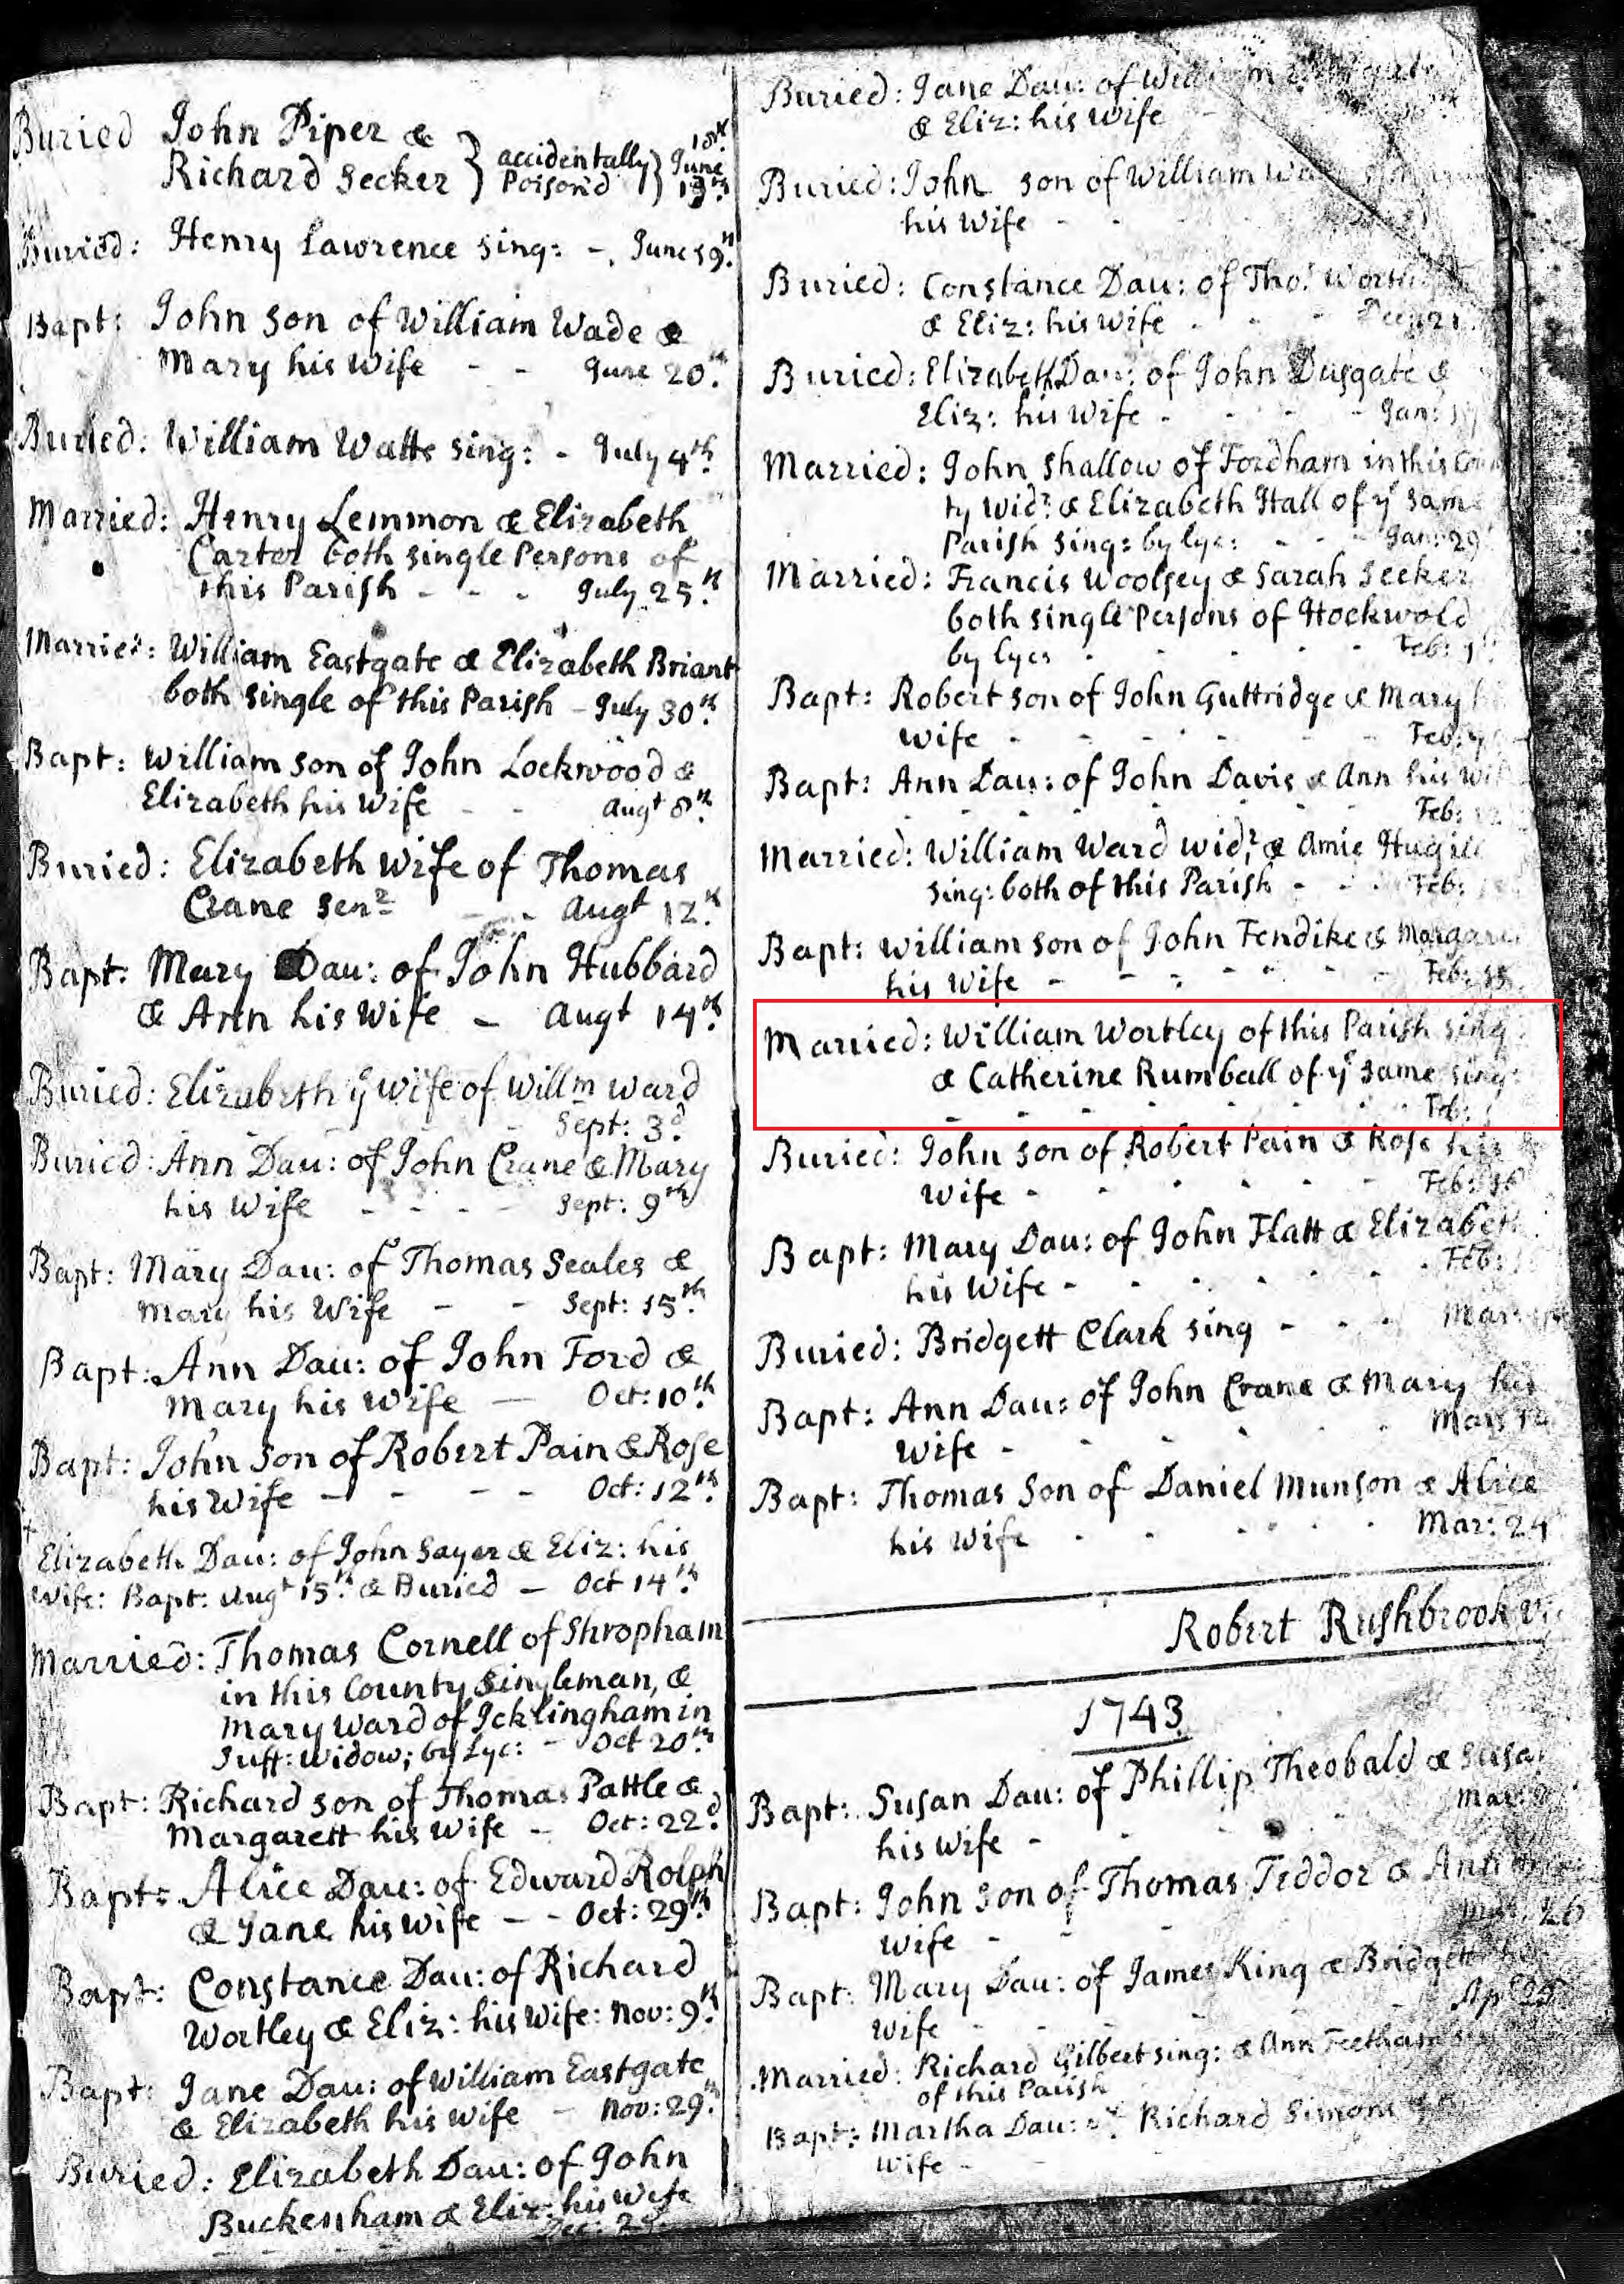 Buried John Piper &
Richard Secker } accidentally Poison'd } June
Buried: Henry Lawrence sing: -. June 19th.
Bapt: John son of William Wade &
Mary his Wife - - June 20th.
Buried: William Watts sing: - July 4th.
Married: Henry Lemmon & Elizabeth
Carter both single Persons of
this Parish - - - July 25th.
Married: William Eastgate & Elizabeth Briant
both single of this Parish - July 30th.
Bapt: William son of John Lockwood &
Elizabeth his Wife - - Augt 8th.
Buried: Elizabeth Wife of Thomas
Crane Senr - - Augt 12th.
Bapt: Mary Dau: of John Hubbard
& Ann his Wife - Augt 14th.
Buried: Elizabeth ye Wife of Willm Ward
- - - - Sept: 3d.
Buried: Ann Dau: of John Crane & Mary
his Wife - - - - Sept: 9th
Bapt: Mary Dau: of Thomas Seales &
Mary his Wife - - Sept: 15th.
Bapt: Ann Dau: of John Ford &
Mary his Wife - Oct: 10th.
Bapt: John Son of Robert Pain & Rose
his Wife - - - - Oct: 12th.
Elizabeth Dau: of John Sayer & Eliz: his
Wife: Bapt: Augt 15th. & Buried - Oct 14th.
Married: Thomas Cornell of Shropham
in this County Singleman, &
Mary Ward of Icklingham in
Suff: Widow; by Lyc: - Oct 20th.
Bapt: Richard son of Thomas Pattle &
Margarett his Wife - Oct: 22d.
Bapt: Alice Dau: of Edward Rolph
& Jane his Wife - - Oct: 29th.
Bapt: Constance Dau: of Richard
Wortley & Eliz: his Wife: Nov: 9th.
Bapt: Jane Dau: of William Eastgate
& Elizabeth his Wife - Nov: 29th.
Buried: Elizabeth Dau: of John
Buckenham & Eliz: his Wife
Dec:
Buried: Jane Dau: of
& Eliz: his Wife -
Buried: John son of William
his Wife - -
Buried: Constance Dau: of Tho:
& Eliz: his Wife - - - Dec: 21
Buried: Elizabeth Dau: of John Dusgate &
Eliz: his Wife - - - - Jan:
Married: John Shallow of Fordham in this Coun
ty Widr: & Elizabeth Hall of ye Same
Parish Sing: by lyc: - - - Jan: 29
Married: Francis Woolsey & Sarah Secker
both single Persons of Hockwold
by lyce - - - - - Feb:
Bapt: Robert son of John Guttridge & Mary
Wife - - - - - - Feb:
Bapt: Ann Dau: of John Davis & Ann his Wif
- - - - - - - Feb:
Married: William Ward Widr: & Amie
Sing: both of this Parish - - - Feb:
Bapt: William son of John Fendike & Margaret
his Wife - - - - - - Feb: 15
Married: William Wortley of this Parish sing
& Catherine Rumball of ye same sing:
- - - - - - - Feb:
Buried: John son of Robert Pain & Rose his
Wife - - - - - - Feb: 16
Bapt: Mary Dau: of John Flatt & Elizabeth
his Wife - - - - - - Feb:
Buried: Bridgett Clark sing - - - Mar:
Bapt: Ann Dau: of John Crane & Mary his
Wife - - - - - - Mar: 12
Bapt: Thomas Son of Daniel Munson & Alice
his Wife - - - - - Mar: 24
Robert Rushbrook
1743
Bapt: Susan Dau: of Phillip Theobald & Susa
his Wife - - - - Mar:
Bapt: John Son of Thomas Teddor & Ann
Wife - - - - Mar: 26
Bapt: Mary Dau: of James King & Bridgett
Wife - - - - Apl 25
Married: Richard Gilbert sing: & Ann Feetham
of this Parish
Bapt: Martha Dau: of Richard Simons
Wife -